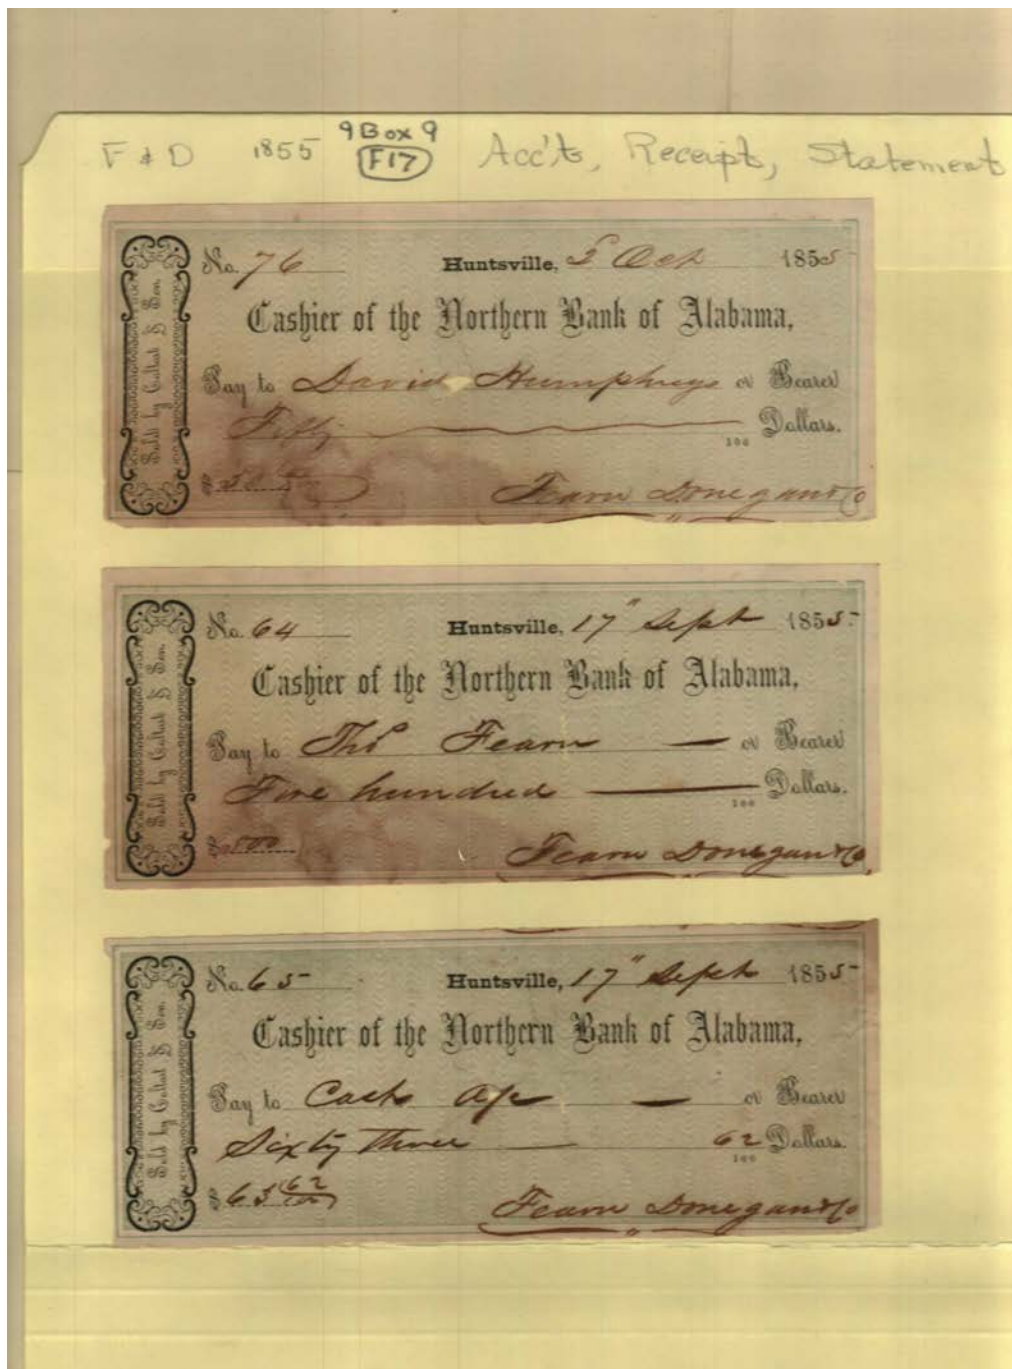 9 Box 9
F & D 1855 F17 Acc'ts, Receipts, Statements
Sold by Coltart & Son.
No. 76 Huntsville, 5 Oct 1855
Cashier of the Northern Bank of Alabama,
Pay to David Humphreys or Bearer
Fifty 100 Dollars.
$50 Fearn Donegan & Co
Sold by Coltart & Son.
No. 64 Huntsville, 17" Sept 1855
Cashier of the Northern Bank of Alabama,
Pay to Thos Fearn — or Bearer
Five hundred — 100 Dollars.
$500 Fearn Donegan & Co.
Sold by Coltart & Son.
No. 65 Huntsville, 17" Sept 1855
Cashier of the Northern Bank of Alabama,
Pay to Cash a/c — or Bearer
Sixty three — 62/100 Dollars.
$63 62/100 Fearn Donegan & Co